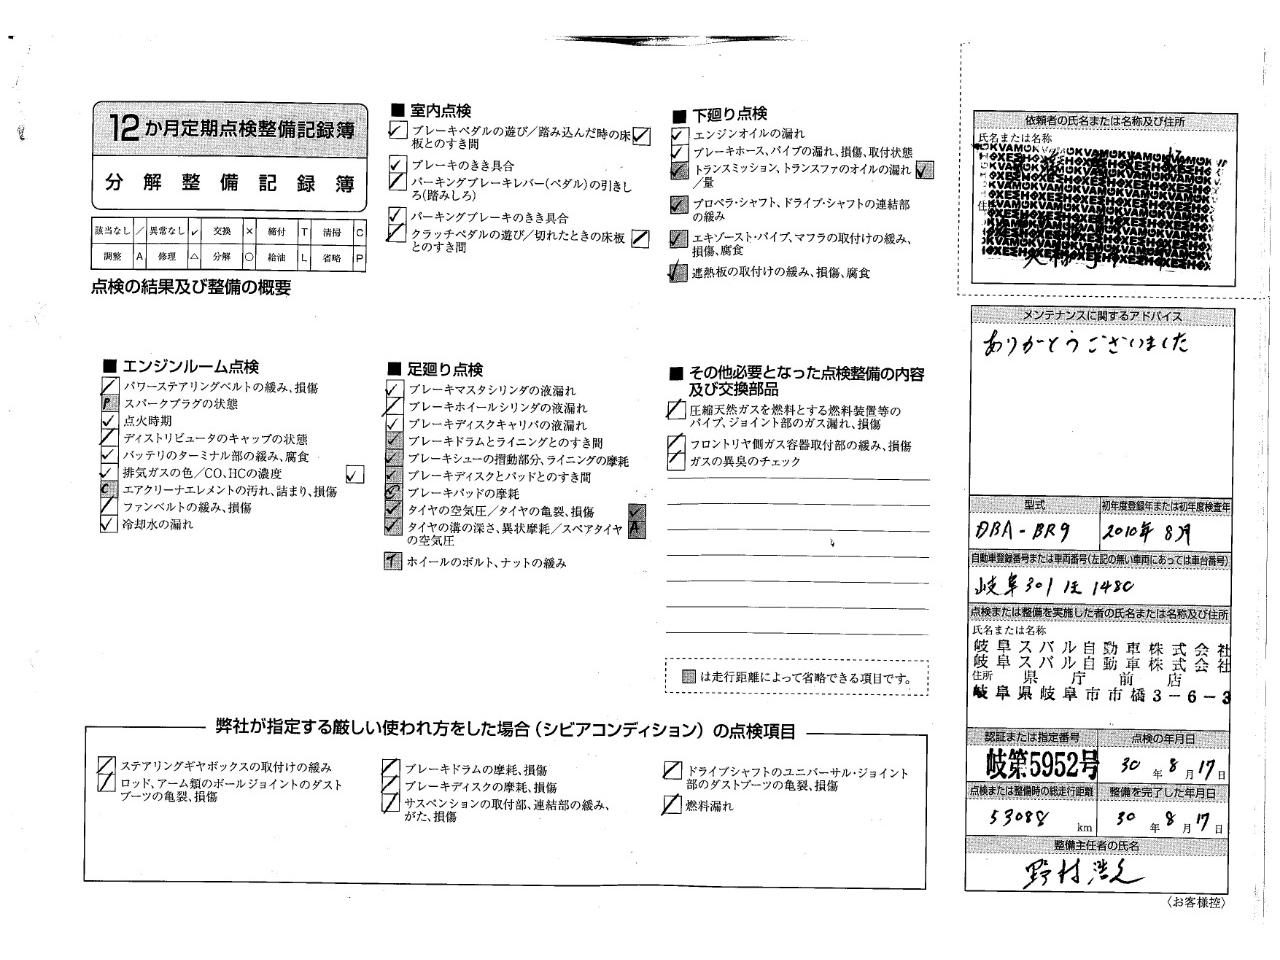 12か月定期点検整備記録簿
分解整備記録簿
該当なし ／ 異常なし ✓ 交換 × 締付 T 清掃 C
調整 A 修理 △ 分解 ○ 給油 L 省略 P
点検の結果及び整備の概要
■ 室内点検
ブレーキペダルの遊び／踏み込んだ時の床
板とのすき間
ブレーキのきき具合
パーキングブレーキレバー（ペダル）の引きし
ろ（踏みしろ）
パーキングブレーキのきき具合
クラッチペダルの遊び／切れたときの床板
とのすき間
■ 下廻り点検
エンジンオイルの漏れ
ブレーキホース、パイプの漏れ、損傷、取付状態
トランスミッション、トランスファのオイルの漏れ
／量
プロペラ・シャフト、ドライブ・シャフトの連結部
の緩み
エキゾースト・パイプ、マフラの取付けの緩み、
損傷、腐食
遮熱板の取付けの緩み、損傷、腐食
■ エンジンルーム点検
パワーステアリングベルトの緩み、損傷
P スパークプラグの状態
点火時期
ディストリビュータのキャップの状態
バッテリのターミナル部の緩み、腐食
排気ガスの色／CO、HCの濃度
C エアクリーナエレメントの汚れ、詰まり、損傷
ファンベルトの緩み、損傷
冷却水の漏れ
■ 足廻り点検
ブレーキマスタシリンダの液漏れ
ブレーキホイールシリンダの液漏れ
ブレーキディスクキャリパの液漏れ
ブレーキドラムとライニングとのすき間
ブレーキシューの摺動部分、ライニングの摩耗
ブレーキディスクとパッドとのすき間
ブレーキパッドの摩耗
タイヤの空気圧／タイヤの亀裂、損傷
タイヤの溝の深さ、異状摩耗／スペアタイヤ A
の空気圧
T ホイールのボルト、ナットの緩み
■ その他必要となった点検整備の内容
及び交換部品
圧縮天然ガスを燃料とする燃料装置等の
パイプ、ジョイント部のガス漏れ、損傷
フロントリヤ側ガス容器取付部の緩み、損傷
ガスの異臭のチェック
は走行距離によって省略できる項目です。
弊社が指定する厳しい使われ方をした場合（シビアコンディション）の点検項目
ステアリングギヤボックスの取付けの緩み
ロッド、アーム類のボールジョイントのダスト
ブーツの亀裂、損傷
ブレーキドラムの摩耗、損傷
ブレーキディスクの摩耗、損傷
サスペンションの取付部、連結部の緩み、
がた、損傷
ドライブシャフトのユニバーサル・ジョイント
部のダストブーツの亀裂、損傷
燃料漏れ
依頼者の氏名または名称及び住所
氏名または名称
メンテナンスに関するアドバイス
ありがとうございました
型式 初年度登録年または初年度検査年
DBA-BR9 2010年 8月
自動車登録番号または車両番号（左記の無い車両にあっては車台番号）
岐阜 301 ほ 1480
点検または整備を実施した者の氏名または名称及び住所
氏名または名称
岐阜スバル自動車株式会社
岐阜スバル自動車株式会社
住所 県庁前店
岐阜県岐阜市市橋3-6-3
認証または指定番号 点検の年月日
岐第5952号 30年8月17日
点検または整備時の総走行距離 整備を完了した年月日
53088 km 30年8月17日
整備主任者の氏名
野村浩之
〈お客様控〉